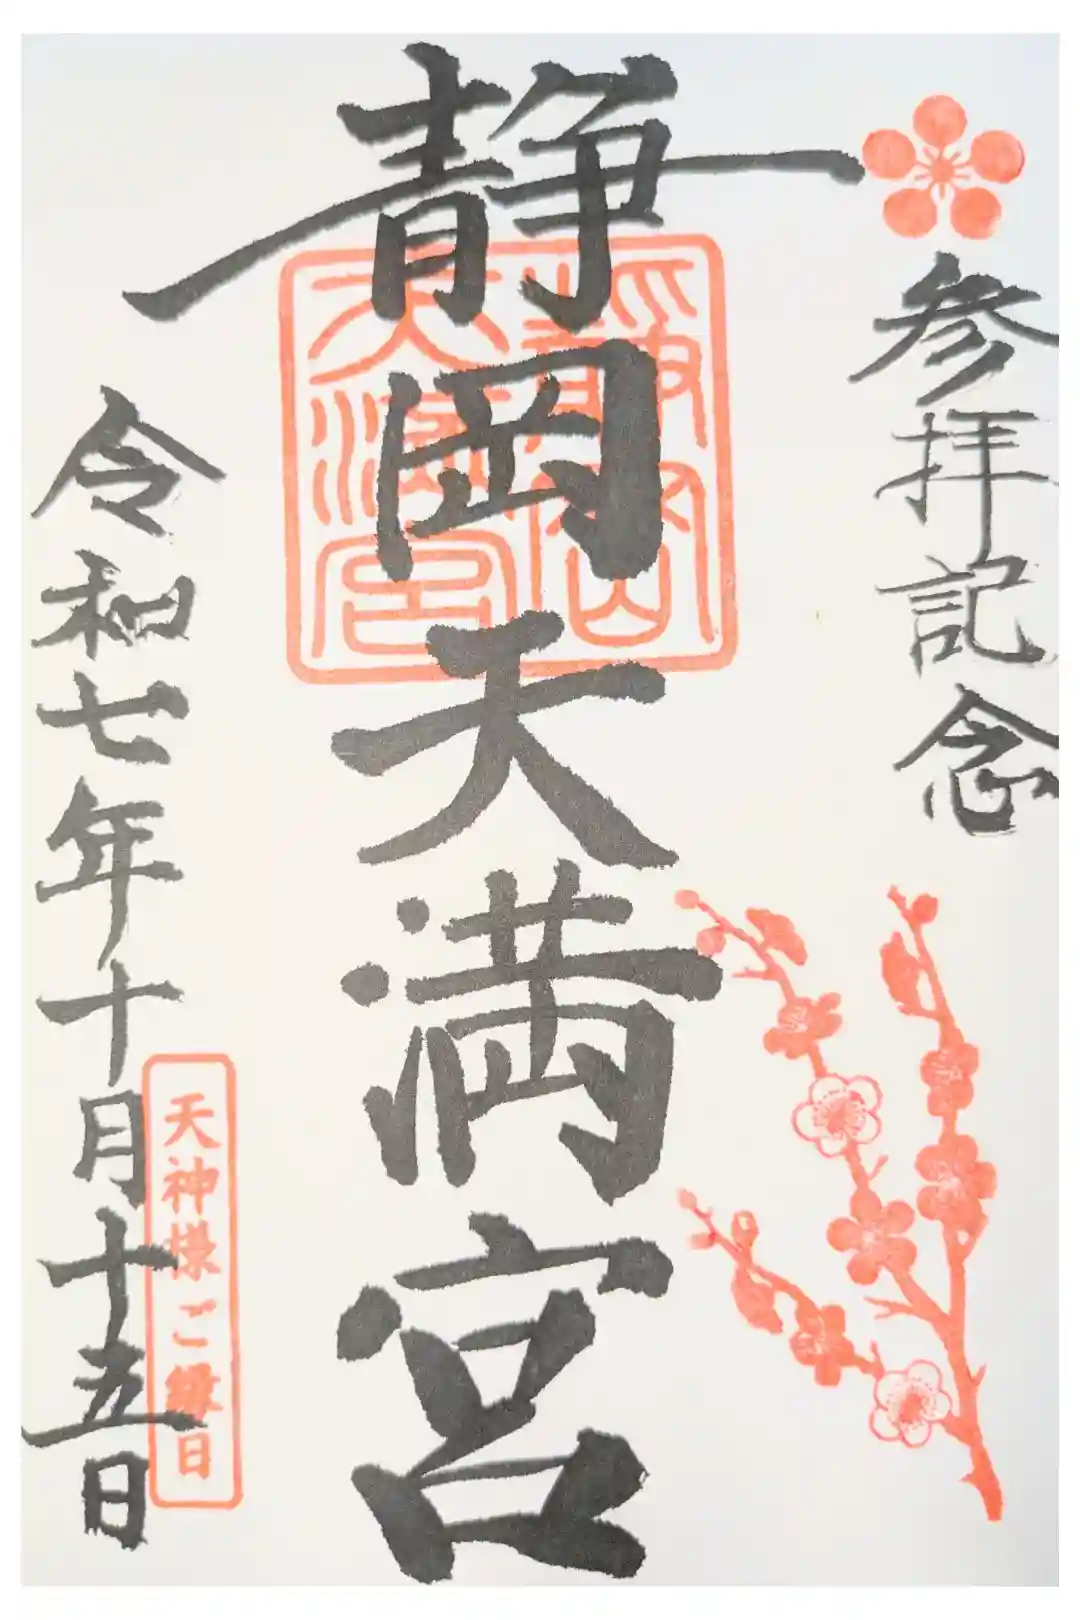 参拝記念
静岡天満宮
静岡天満宮
令和七年十月十五日
天神様ご縁日